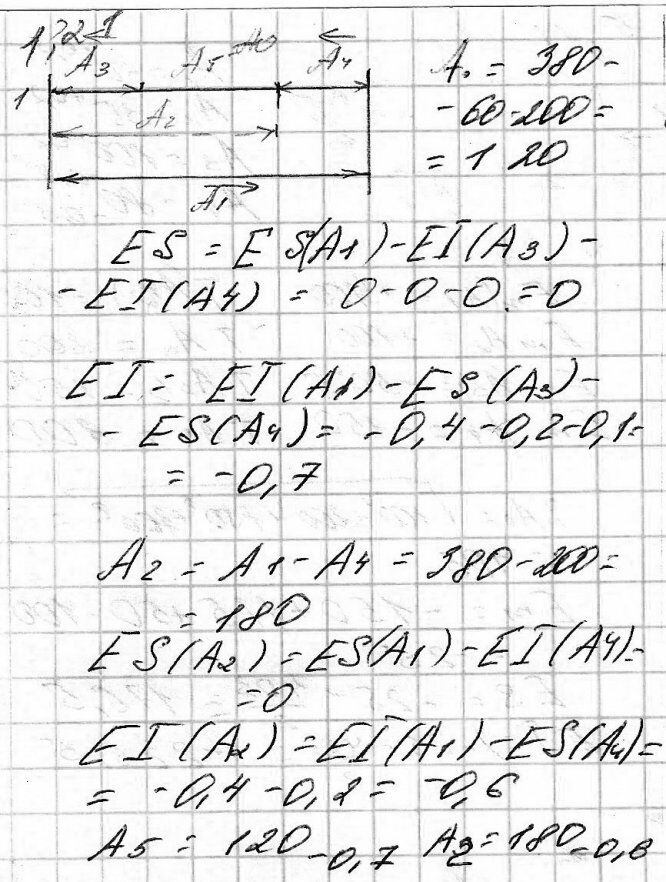 1,2
A3 A5 A0 A4
1
A2
A1
A0 = 380 -
- 60 - 200 =
= 120
ES = ES(A1) - EI(A3) -
- EI(A4) = 0 - 0 - 0 = 0
EI = EI(A1) - ES(A3) -
- ES(A4) = -0,4 - 0,2 - 0,1 =
= -0,7
A2 = A1 - A4 = 380 - 200 =
= 180
ES(A2) = ES(A1) - EI(A4) =
= 0
EI(A2) = EI(A1) - ES(A4) =
= -0,4 - 0,2 = -0,6
A5 = 120 -0,7 A2 = 180 -0,6